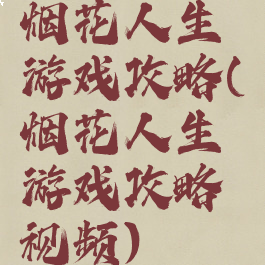 烟花人生
游戏攻略(
烟花人生
游戏攻略
视频)